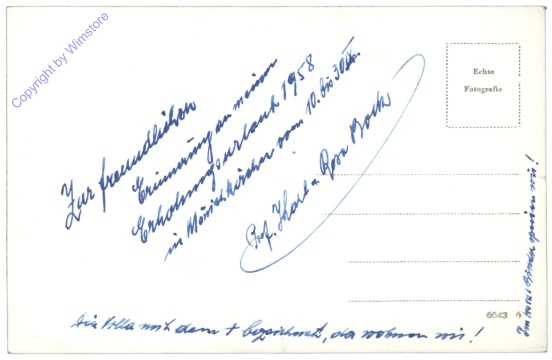 Copyright by Wimstore
Zur freundlichen
Erinnerung an meinen
Erholungsurlaub 1958
in Mönichkirchen vom 10. bis 30. IX.
Prof. Karl u. Rosa Bock
Echte
Fotografie
6643 6
Die Villa mit dem + bezeichnet, da wohnen wir!
Im Hotel Binder speisen wir!